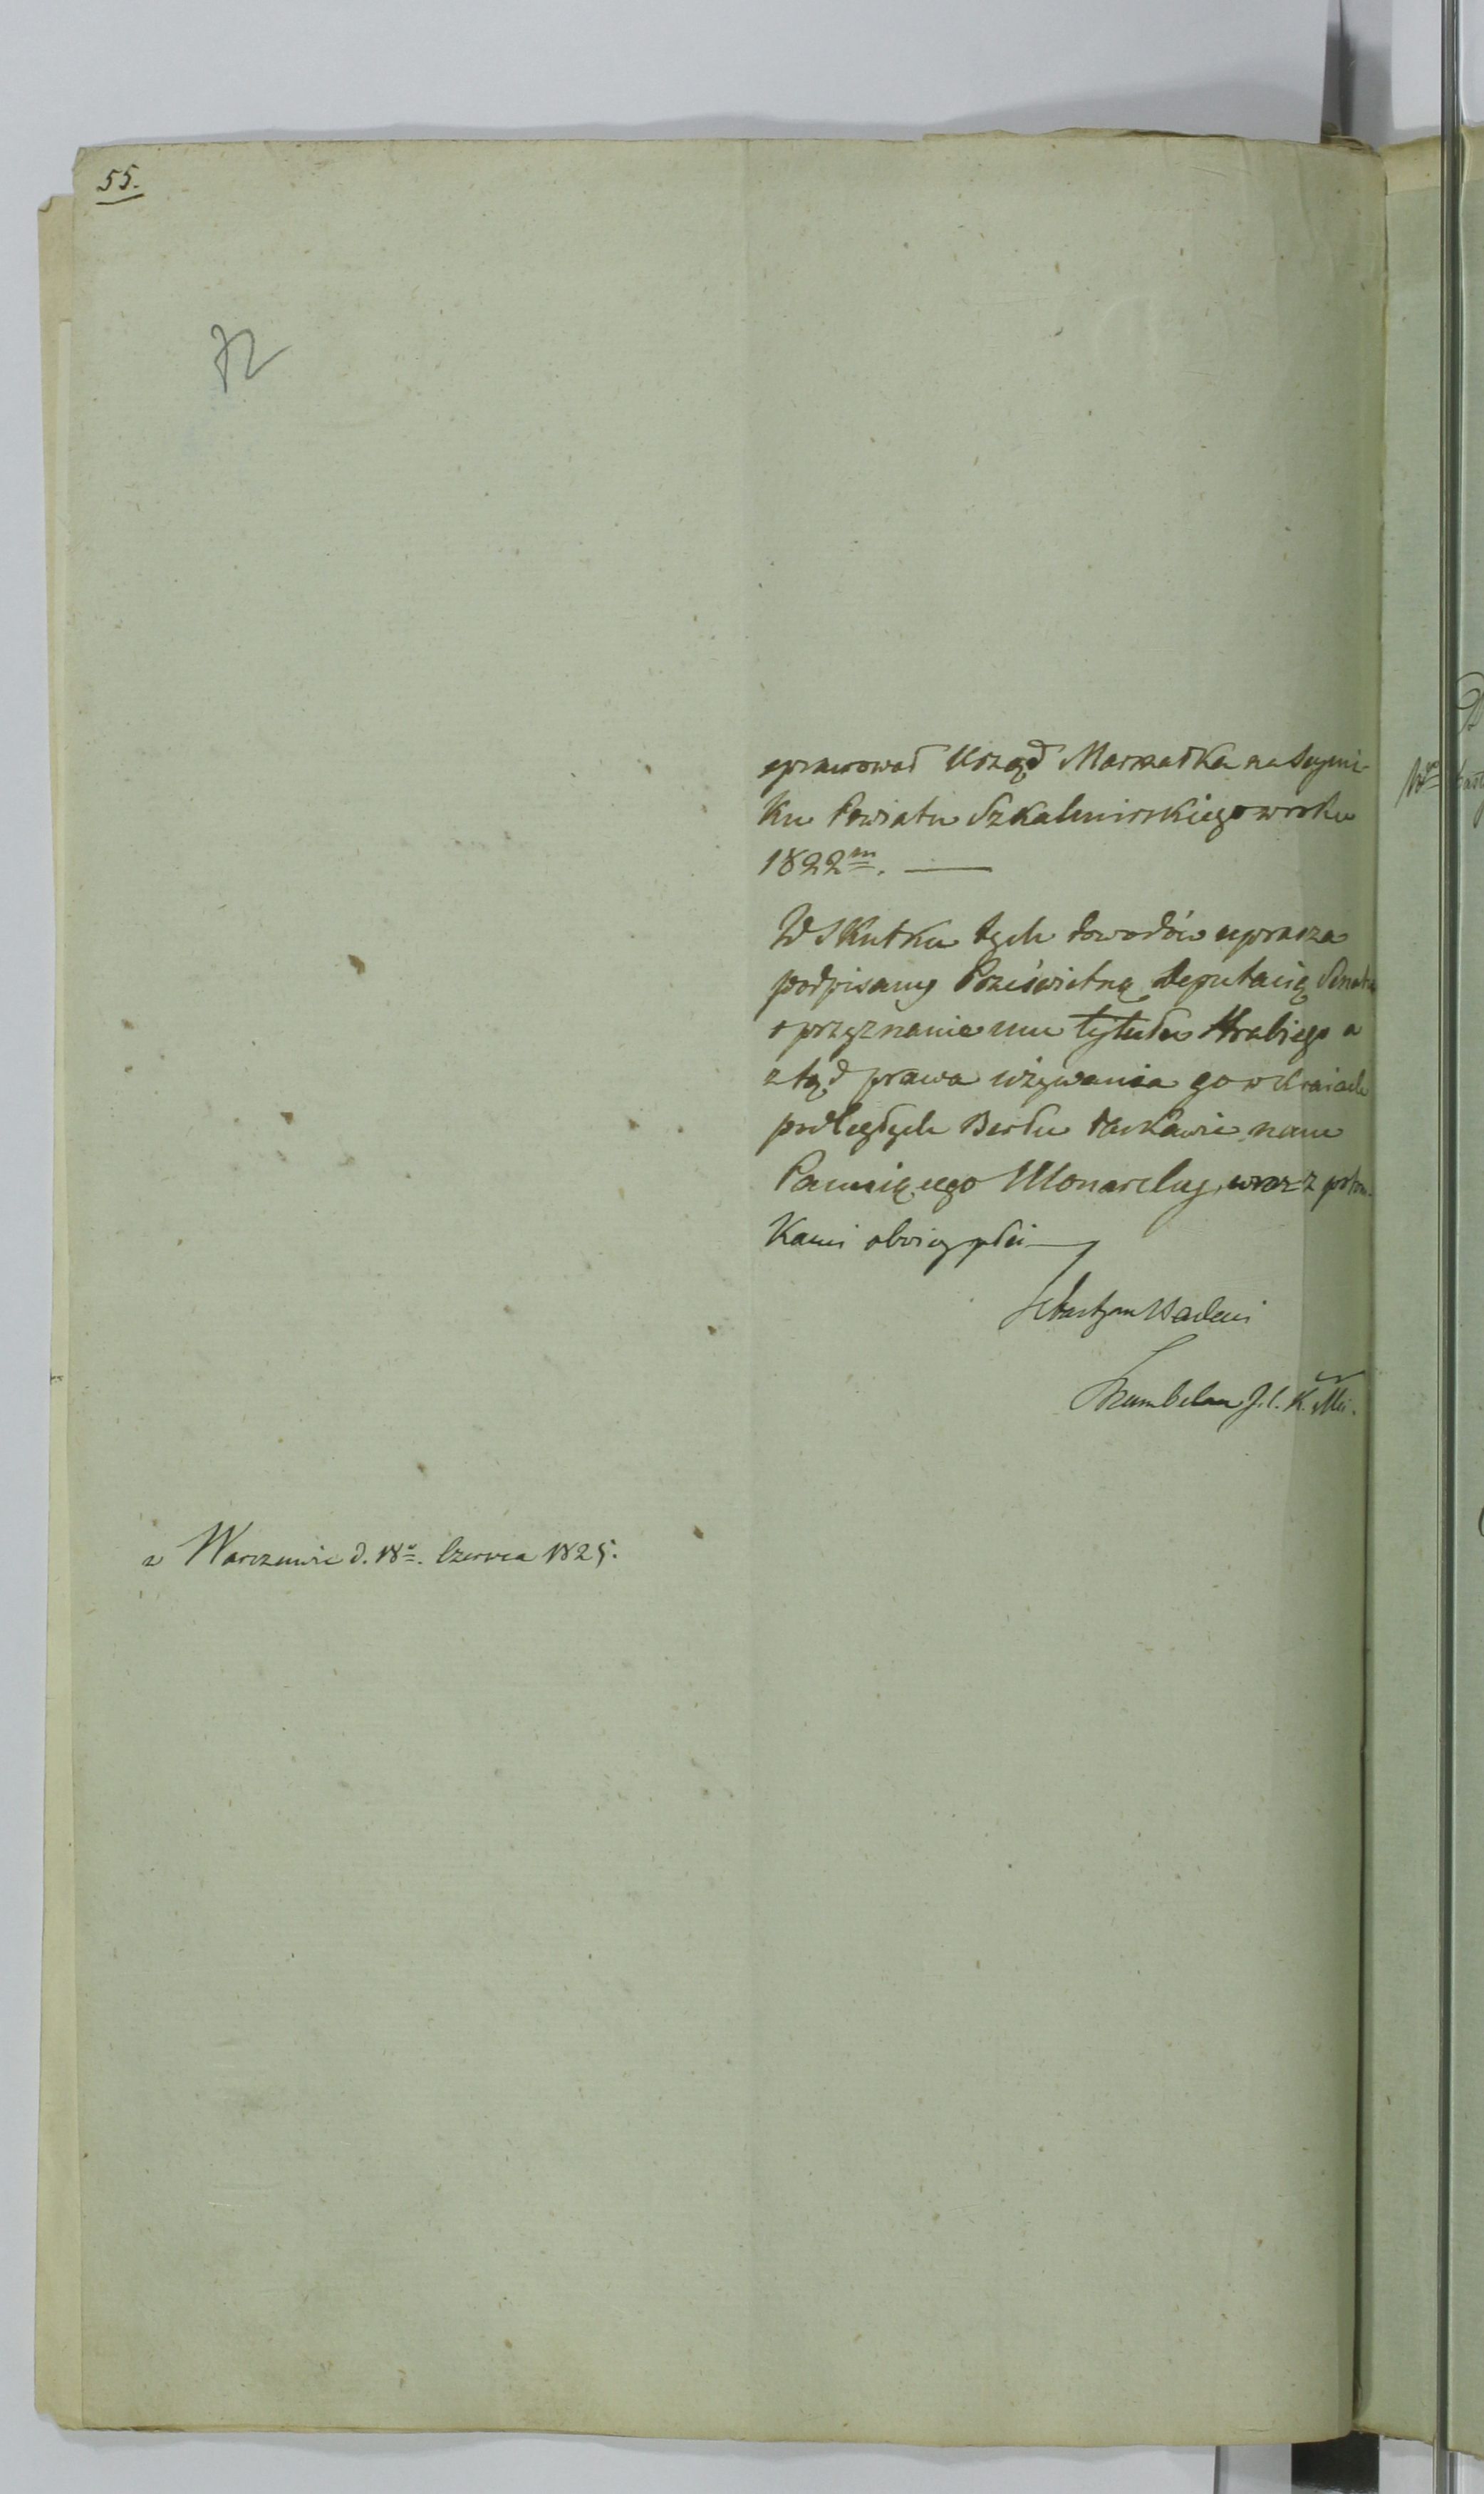 55.
72
sprawował Urząd Marszałka na Seymi-
ku Powiatu Szkalmirskiego w roku
1822m. —
W Skutku tych dowodów uprasza
podpisany Prześwietną Deputacią Senatu
o przyznanie mu tytułu Hrabiego a
ztąd prawa używania go w Kraiach
podległych Berłu łaskawie nam
Panuiącego Monarchy, wraz z potom-
kami oboiey płci
Sebastyan Badeni
Szambelan J. C. K. Mci.
w Warszawie d. 18o. Czerwca 1825.